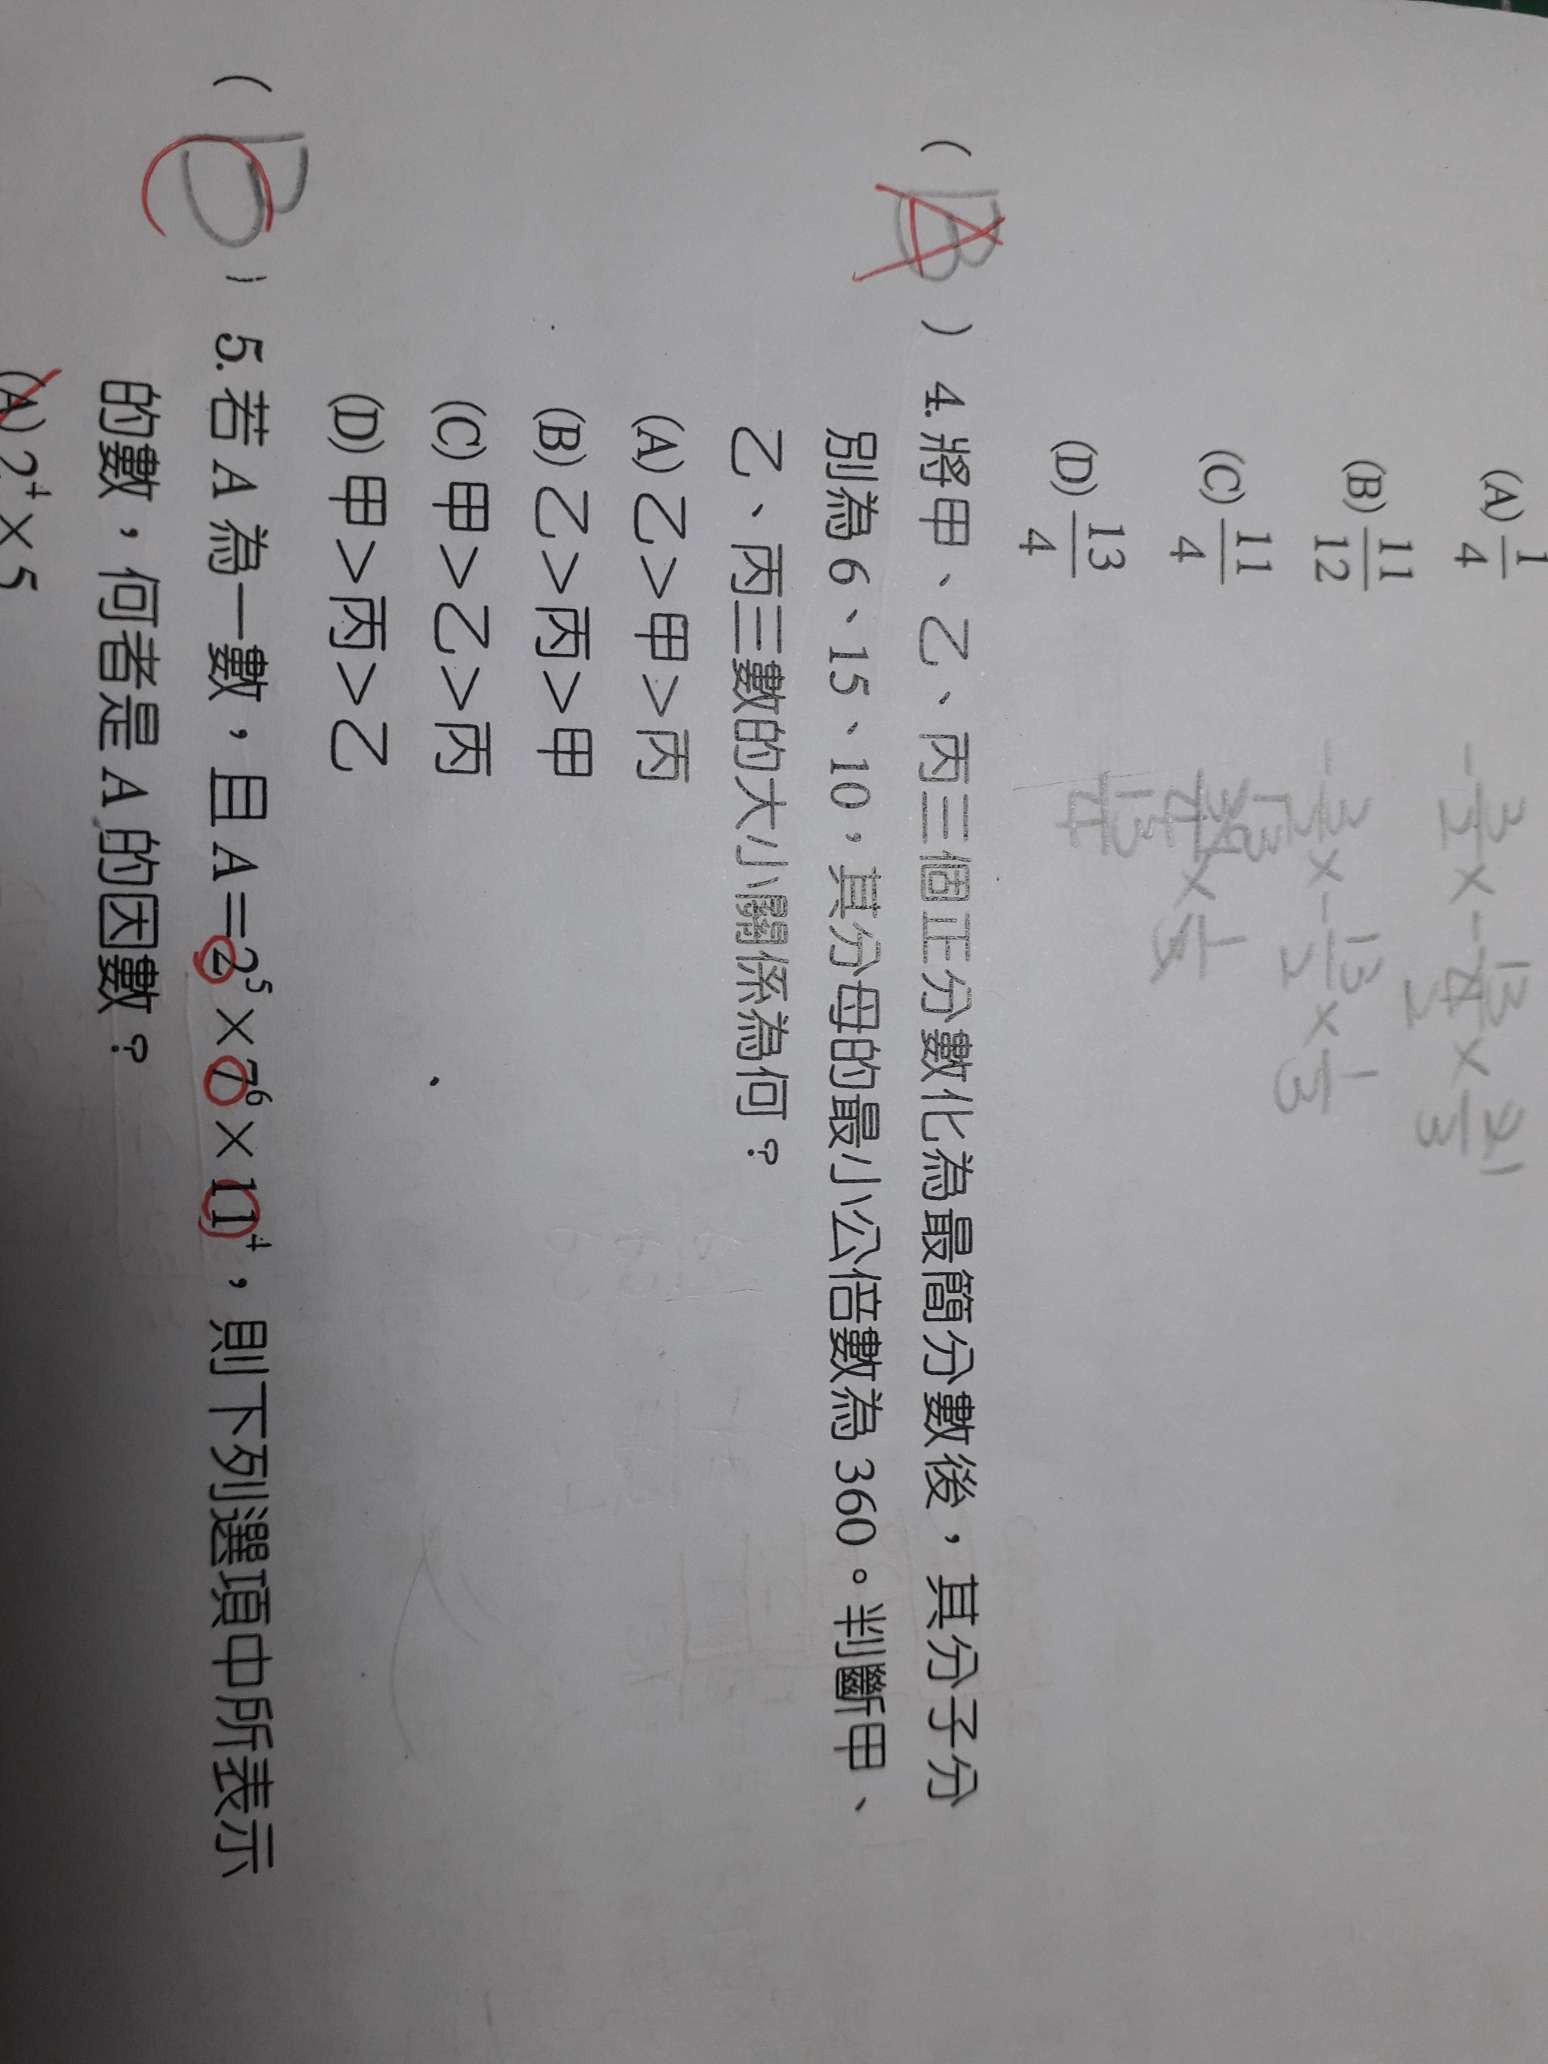 (A) 1/4
(B) 11/12
(C) 11/4
(D) 13/4
( A ) 4. 將甲、乙、丙三個正分數化為最簡分數後，其分子分
別為 6、15、10，其分母的最小公倍數為 360。判斷甲、
乙、丙三數的大小關係為何？
(A) 乙＞甲＞丙
(B) 乙＞丙＞甲
(C) 甲＞乙＞丙
(D) 甲＞丙＞乙
( B ) 5. 若 A 為一數，且 A＝2⁵×7⁶×11⁴，則下列選項中所表示
的數，何者是 A 的因數？
(A) 2⁴×5